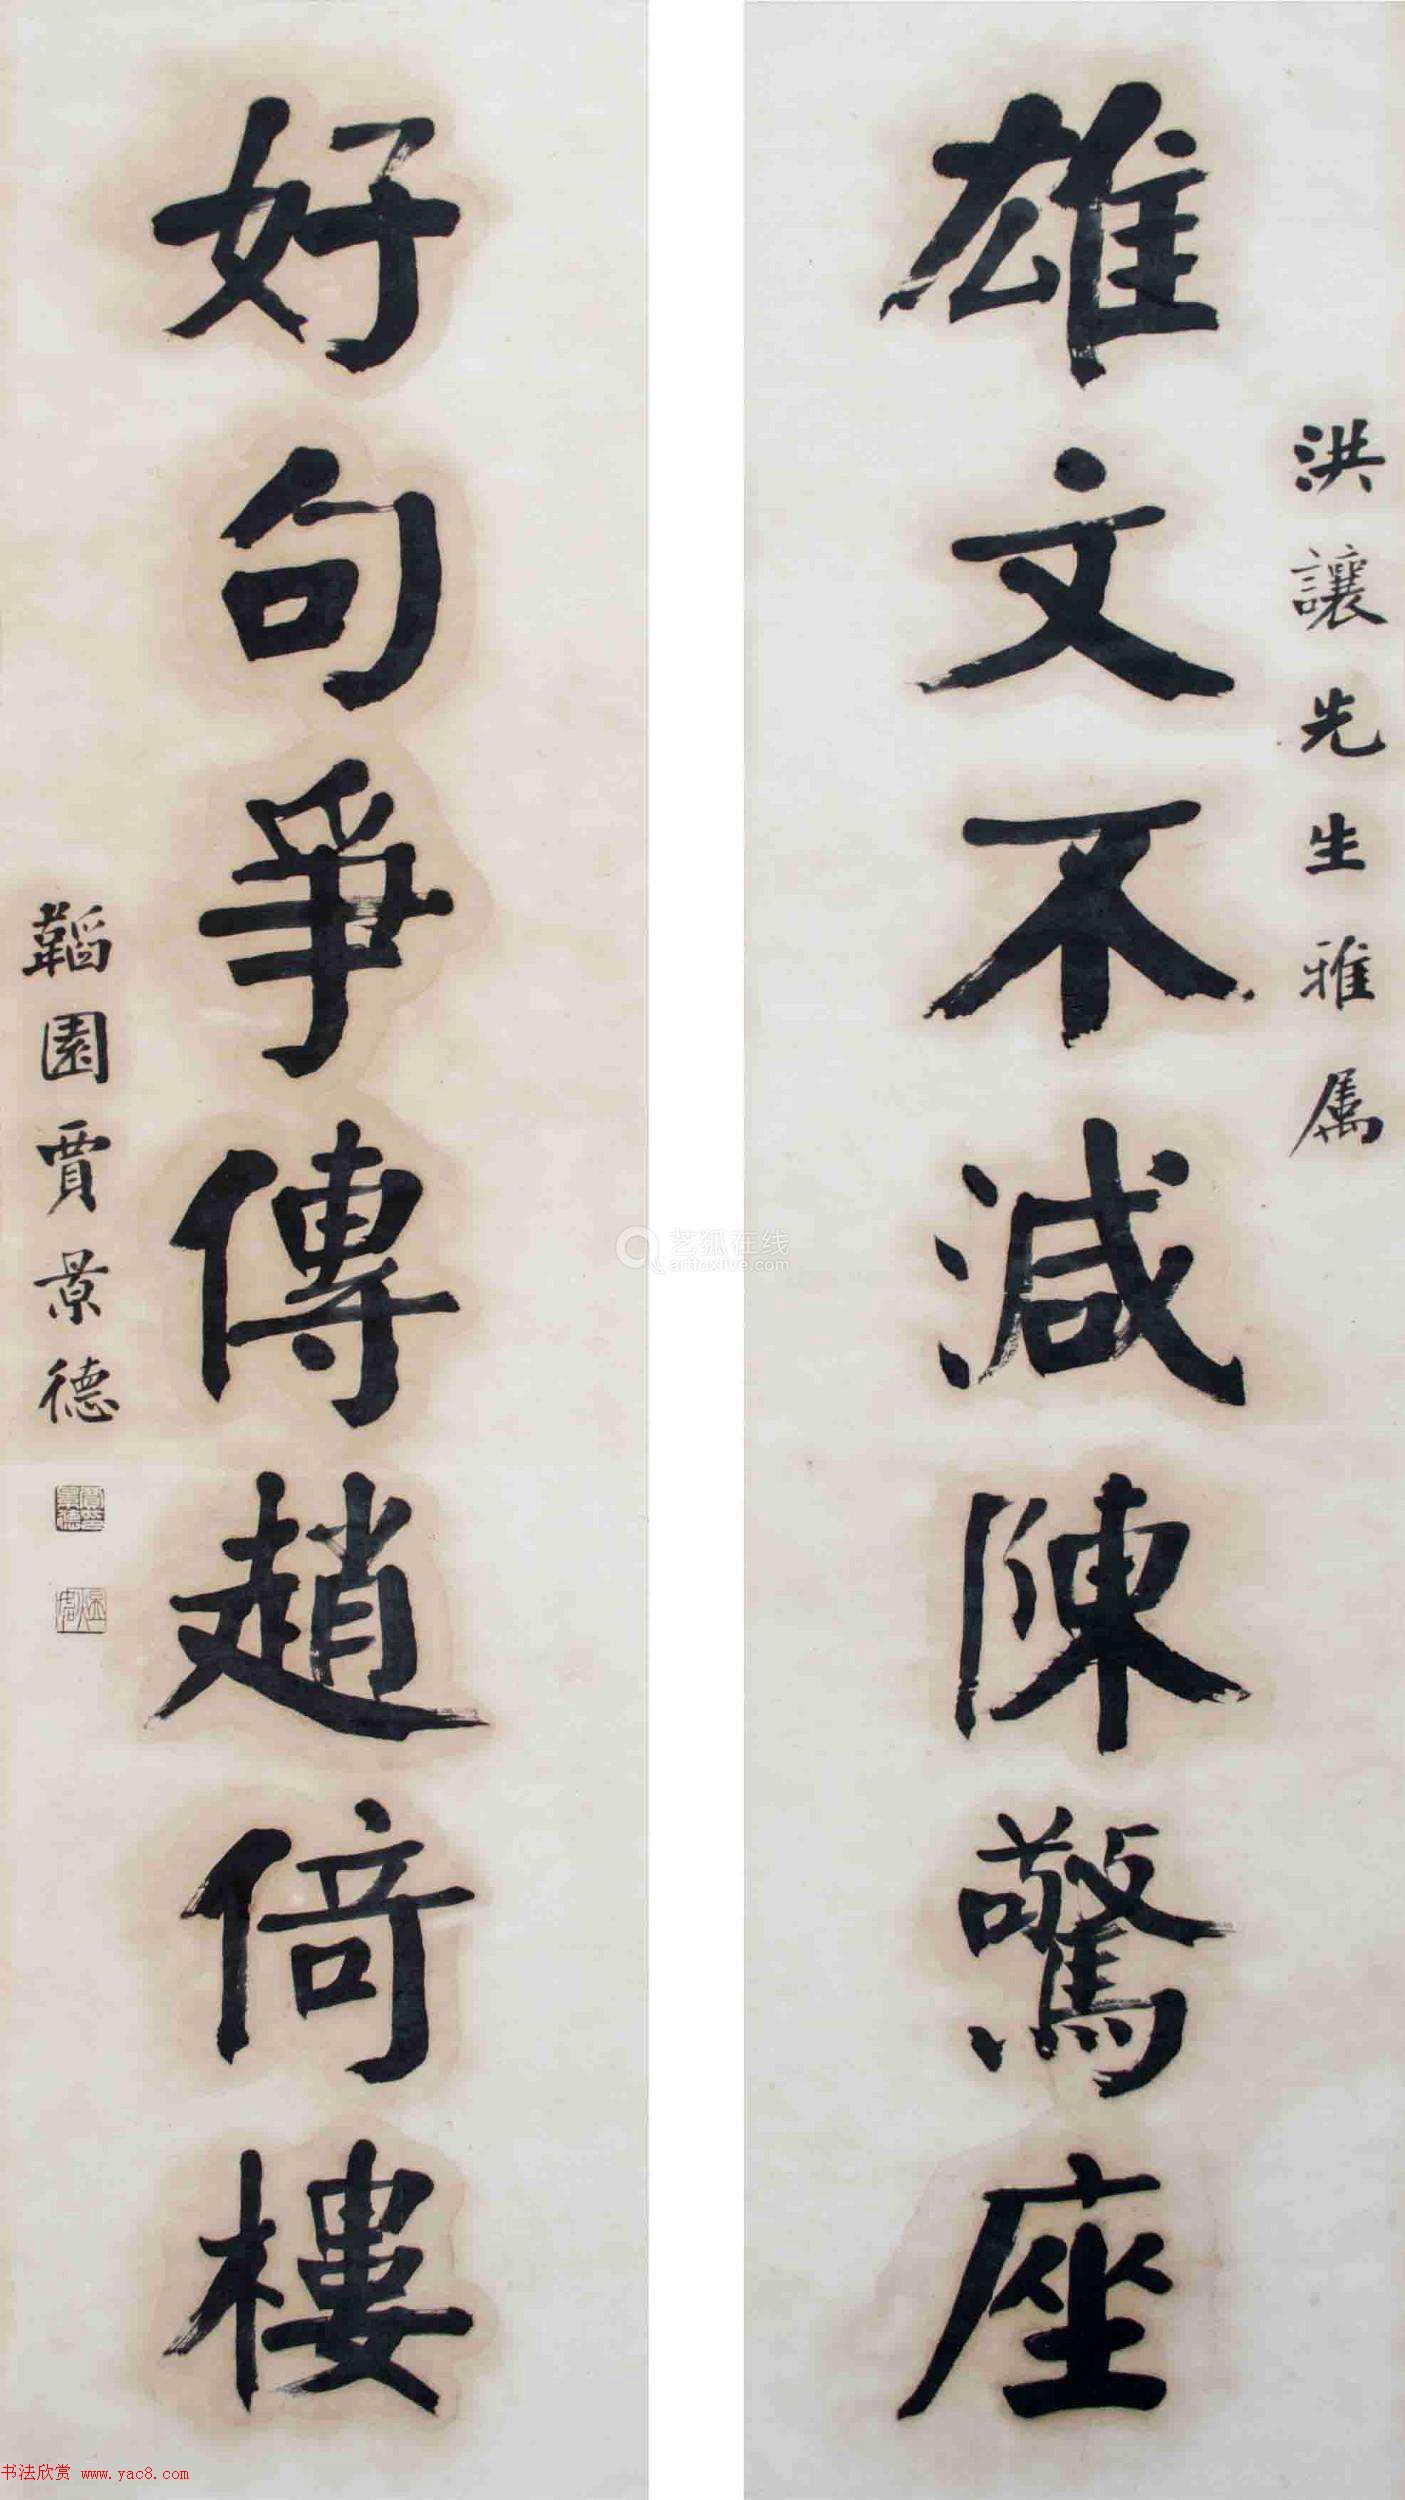 洪讓先生雅属
雄文不減陳驚座
好句爭傳趙倚樓
韜園賈景德
艺狐在线
artfoxlive.com
书法欣赏 www.yac8.com